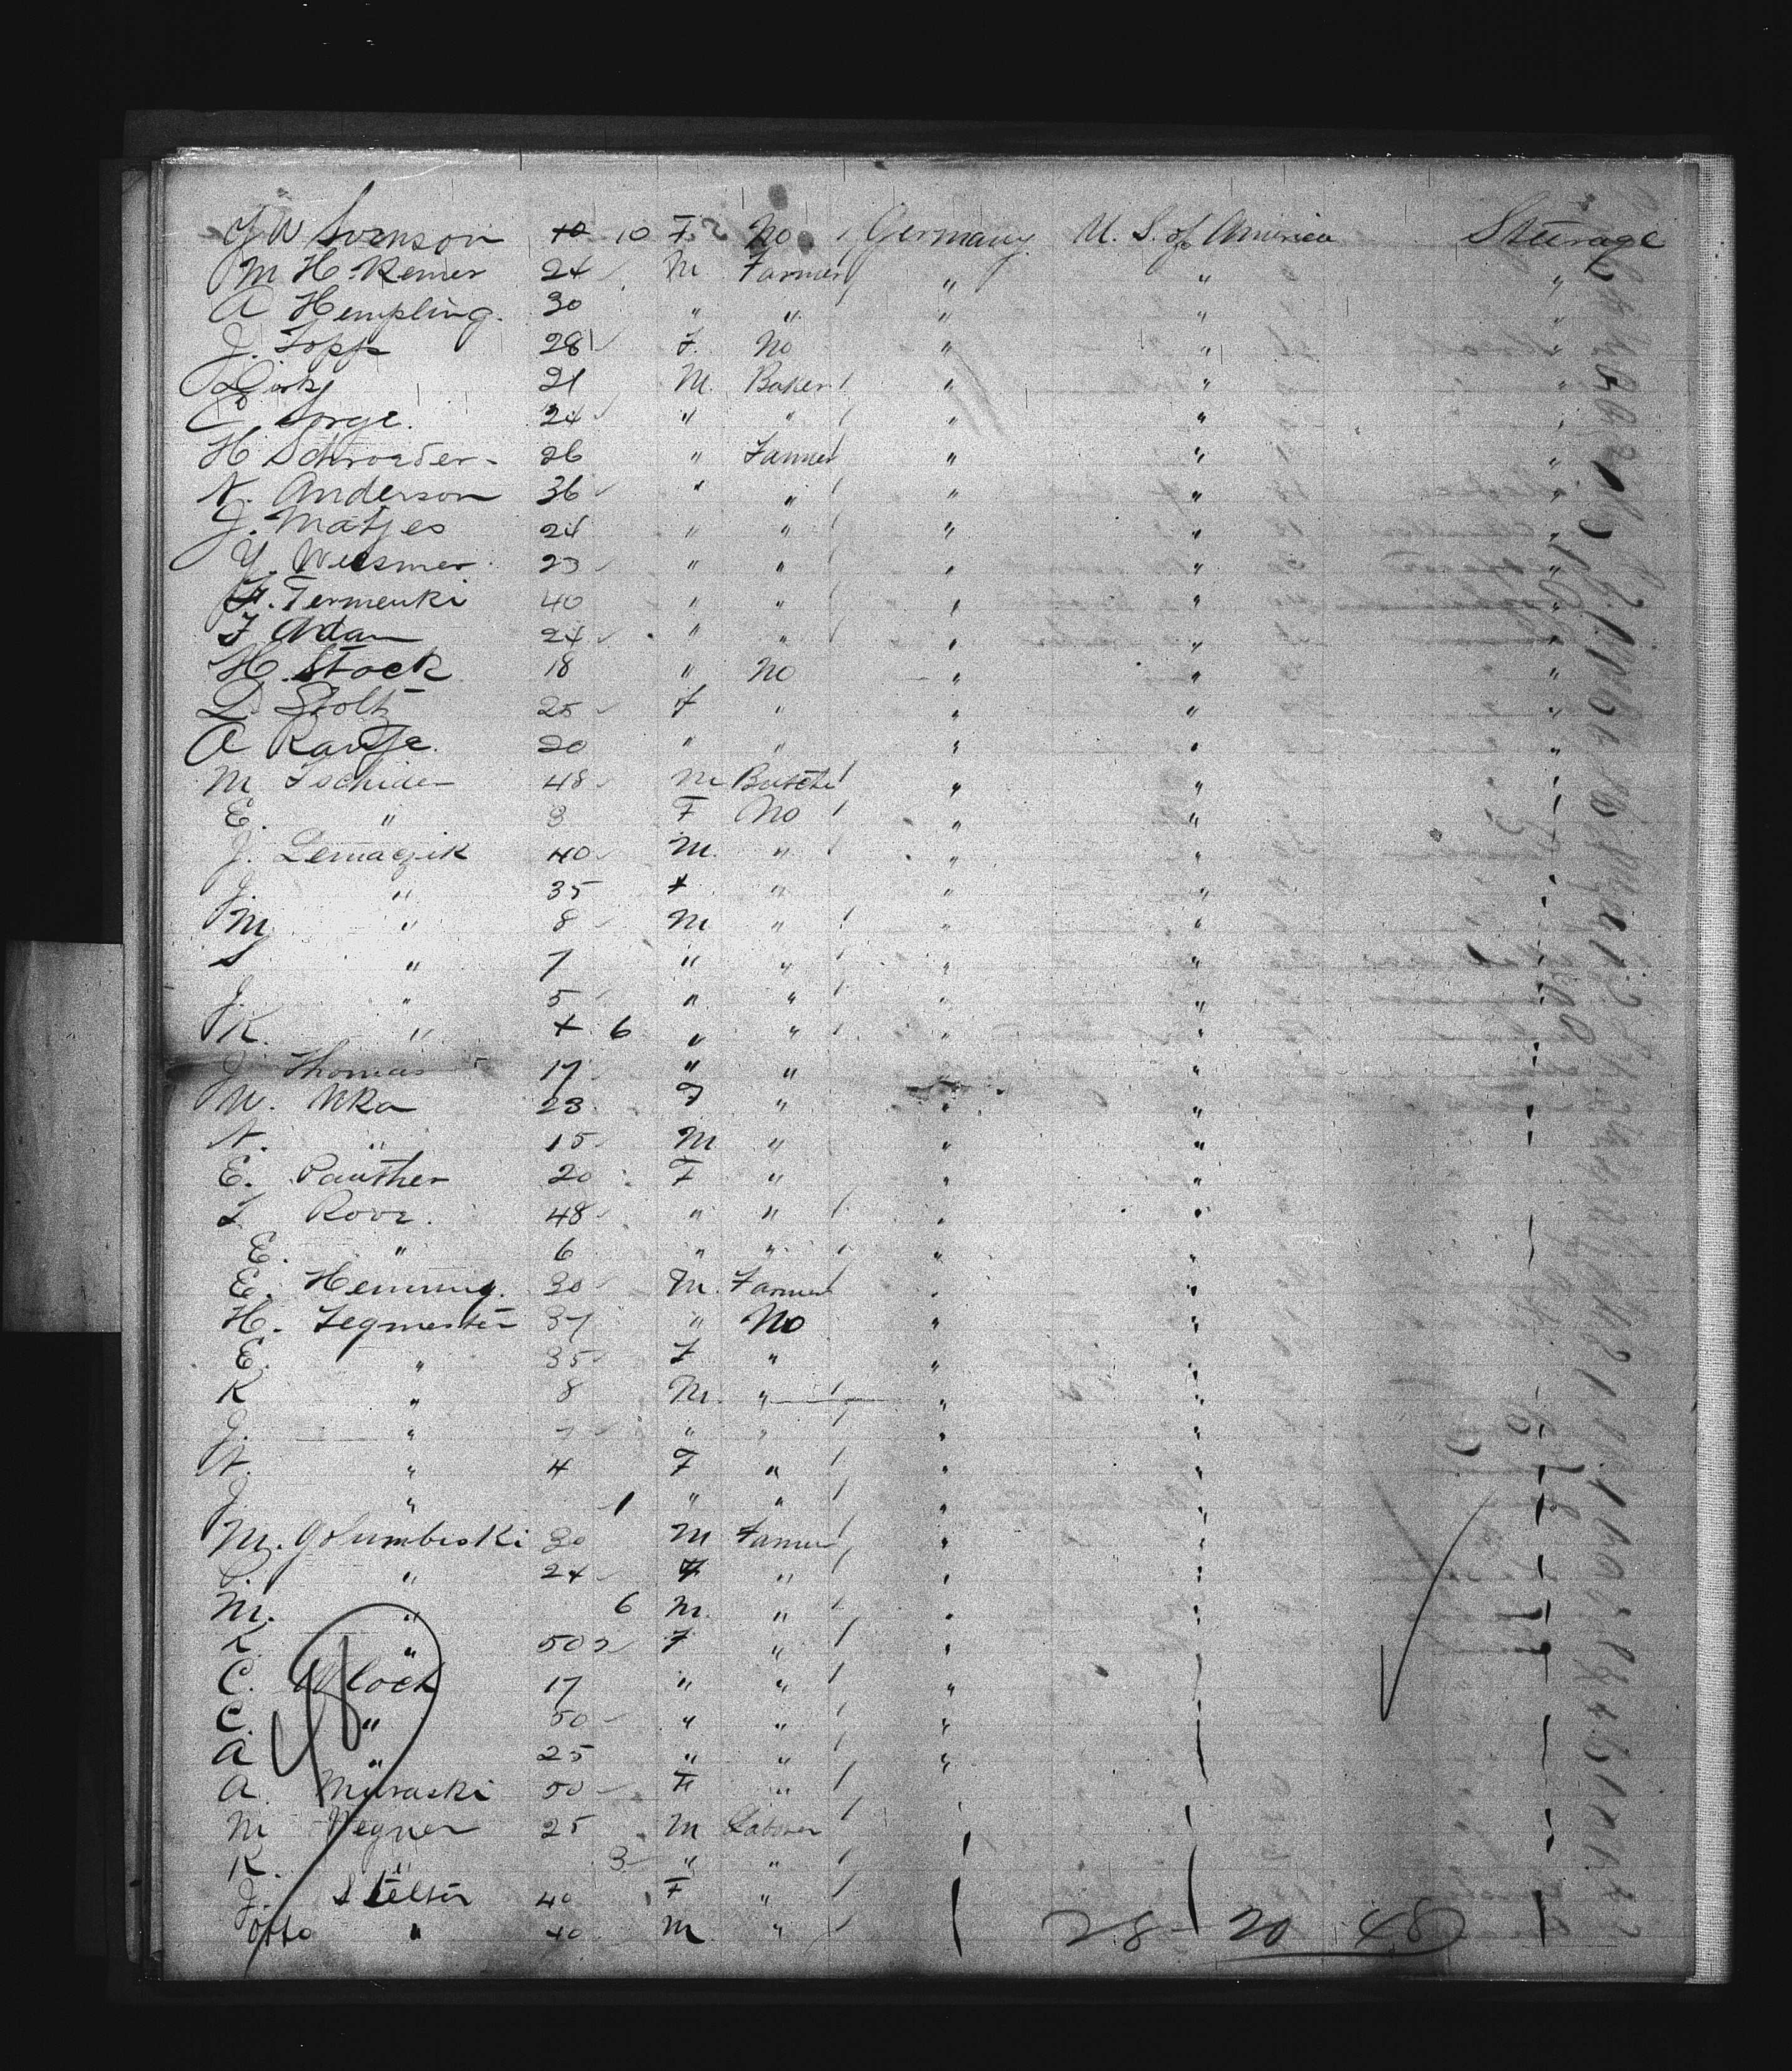 W Svenson 10 10 F. No Germany U. S. of America Steerage
M H. Remer 24 M Farmer " " "
A Hempling. 30 " " " " "
J. Topp 28 F. No " " "
21 M. Baker " " "
Sorge. 24 " " " " "
H Schroeder 26 " Farmer " " "
N. Anderson 36 " " " " "
J. Matjes 24 " " " " "
Y. Weesmer 23 " " " " "
F. Termenki 40 " " " " "
F Adam 24 " " " " "
H. Stock 18 " No " " "
L. Stolt 25 F " " " "
A 20 " " " " "
M Tschider 48 M Butcher " " "
E. " 8 F No " " "
J. Lemaczik 40 M. " " " "
J. " 35 F " " " "
M " 8 M " " " "
S " 7 " " " " "
J. " 5 " " " " "
K. " 6 " " " " "
J Thomas 17 " " " " "
W. 23 F " " " "
N. " 15 M " " " "
E. Panther 20 F " " " "
Rove. 48 " " " " "
E. " 6 " " " " "
E. Henning. 30 M. Farmer " " "
H. Tegmester 37 " No " " "
E. " 35 F " " " "
K " 8 M. " " " "
J. " 7 " " " " "
N. " 4 F " " " "
J. " 1 " " " " "
M. Golumbiski 30 M Farmer " " "
" 24 F " " " "
M. " 6 M. " " " "
K " 50 F " " " "
C. Block 17 " " " " "
C. " 50 " " " "
A " 25 " " "
A. Muraski 50 F "
M Wegner 25 M Laborer
K. " 3 " "
J. Stelter 40 F "
Otto " 40 M " 28 - 20 48
48